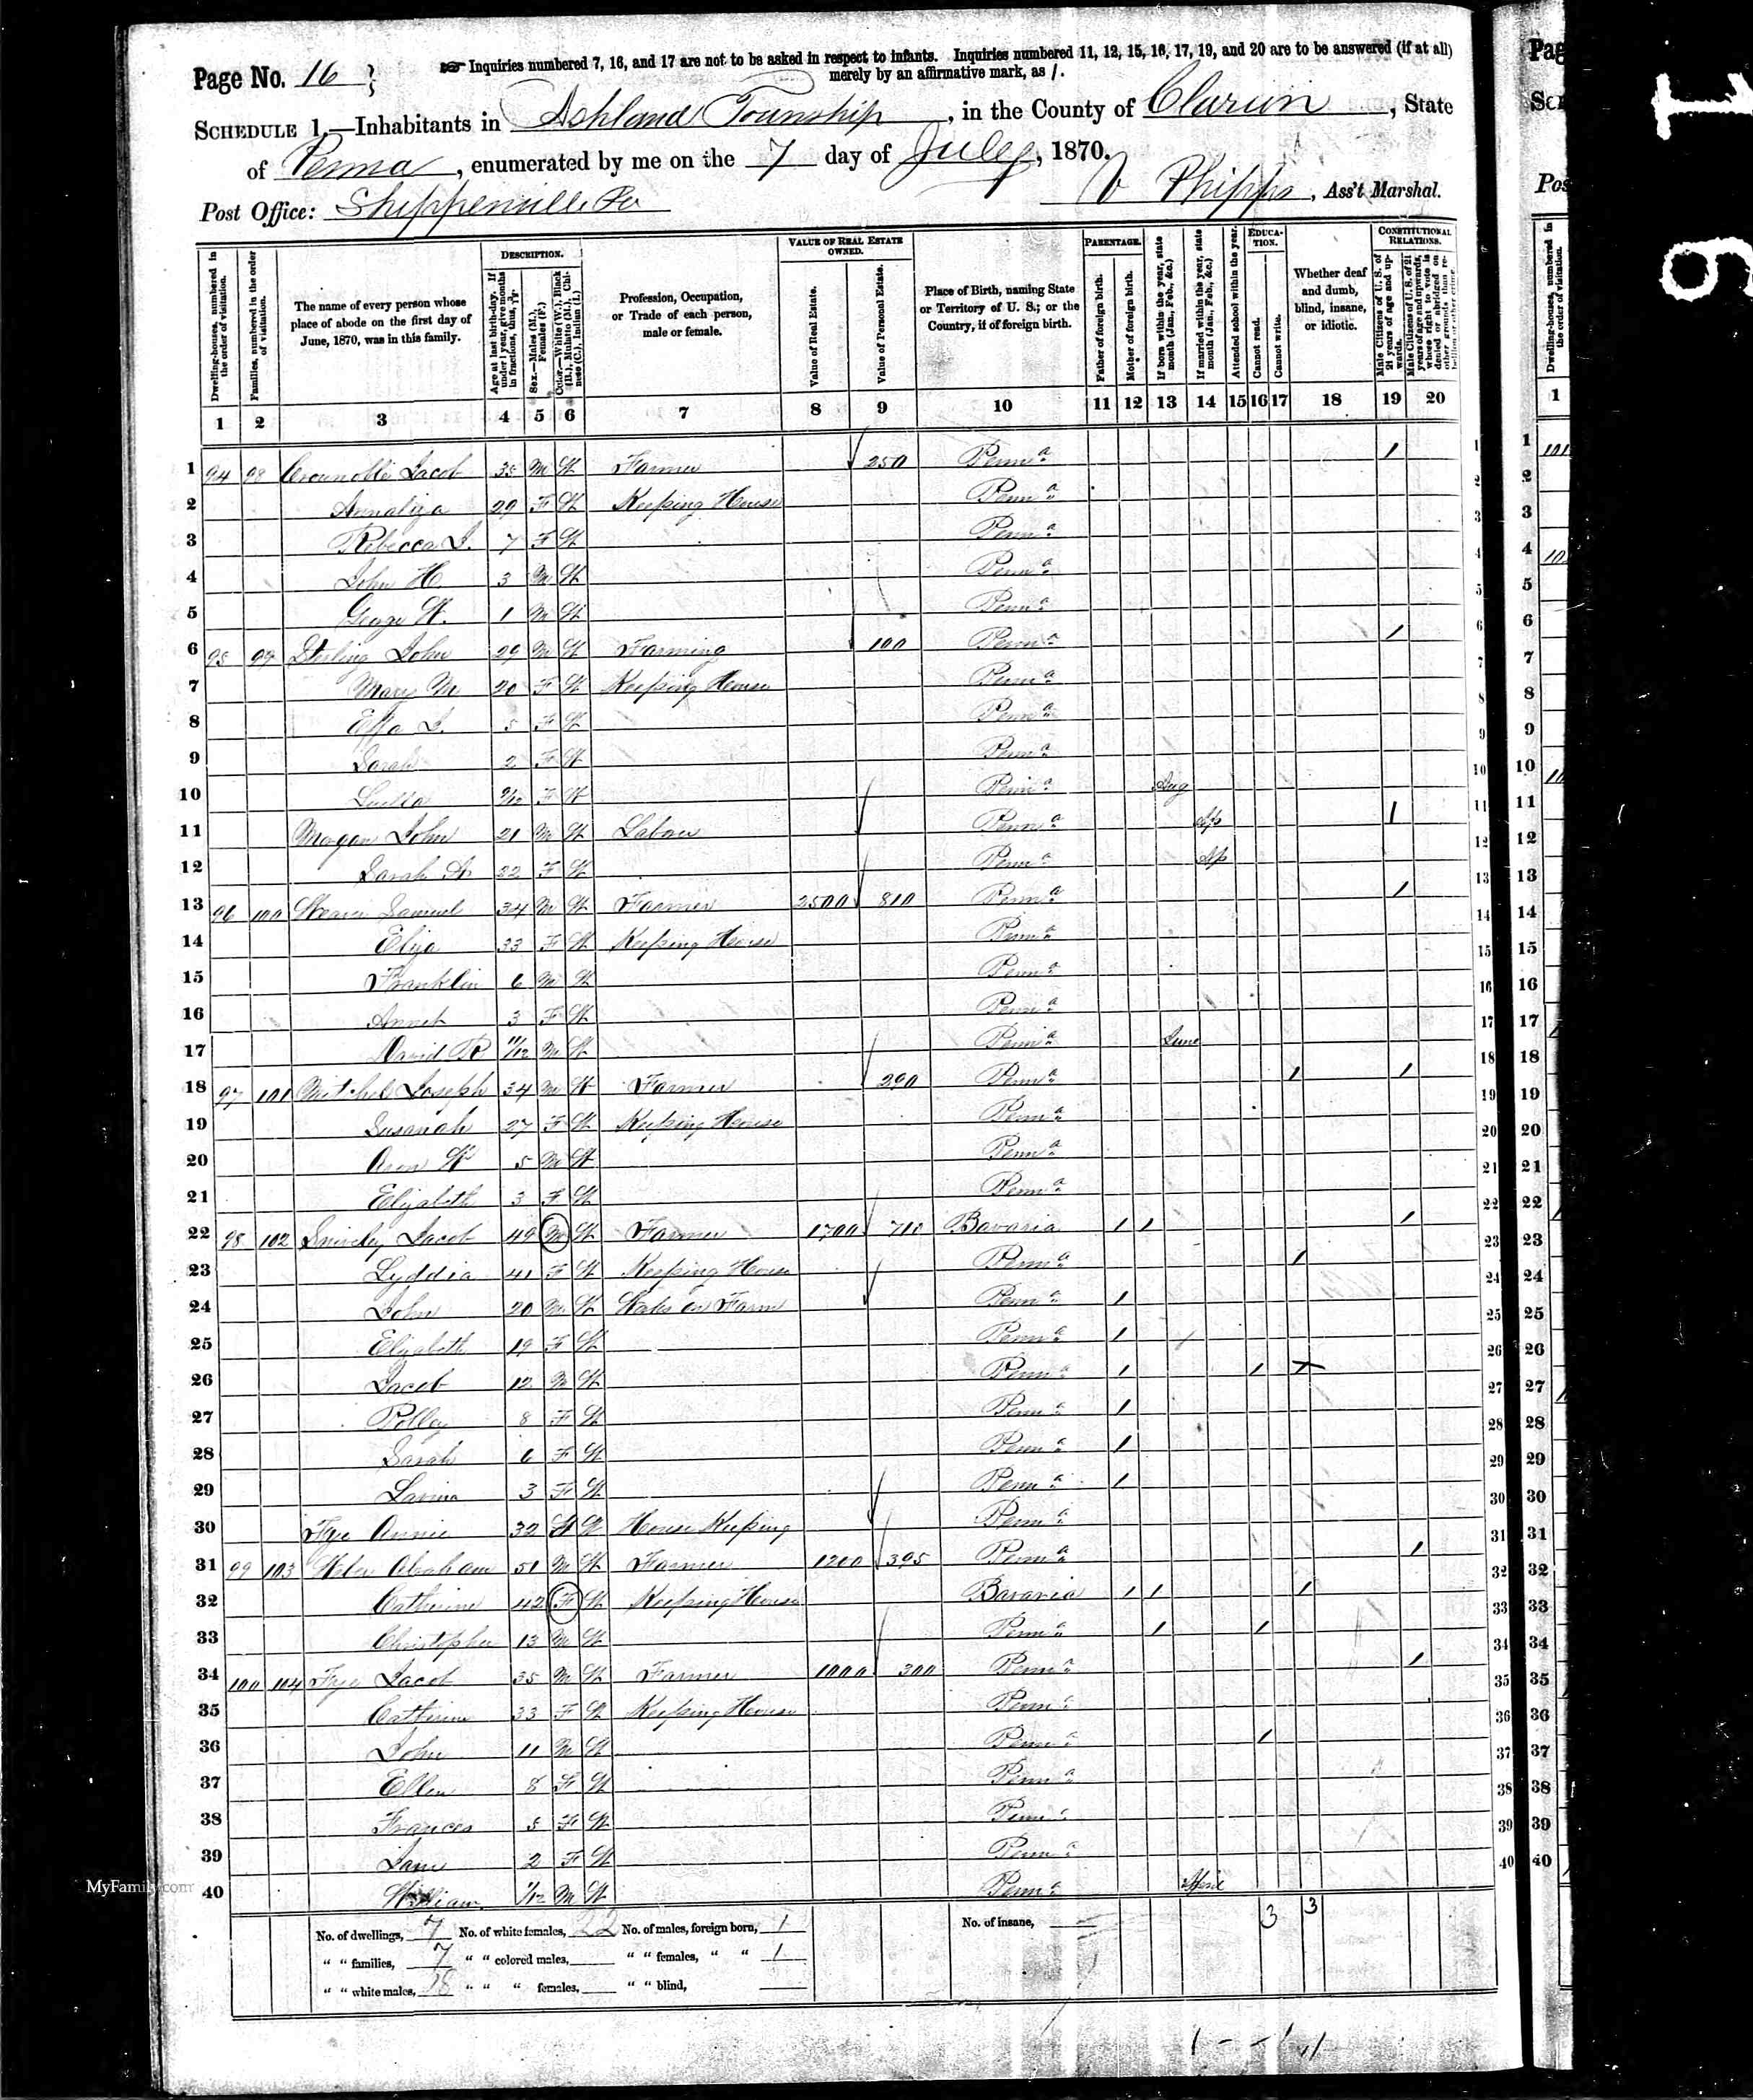 Page No. 16
Inquiries numbered 7, 16, and 17 are not to be asked in respect to infants. Inquiries numbered 11, 12, 15, 16, 17, 19, and 20 are to be answered (if at all)
merely by an affirmative mark, as /.
SCHEDULE 1.—Inhabitants in Ashland Township, in the County of Clarion, State
of Penna, enumerated by me on the 7 day of July, 1870.
Post Office: Shippenville Pa
Phipps, Ass't Marshal.
DESCRIPTION.
VALUE OF REAL ESTATE OWNED.
PARENTAGE.
EDUCATION.
CONSTITUTIONAL RELATIONS.
Dwelling-houses, numbered in the order of visitation.
Families, numbered in the order of visitation.
The name of every person whose place of abode on the first day of June, 1870, was in this family.
Age at last birth-day. If under 1 year, give months in fractions, thus, 3/12.
Sex.—Males (M.), Females (F.)
Color.—White (W.), Black (B.), Mulatto (M.), Chinese (C.), Indian (I.)
Profession, Occupation, or Trade of each person, male or female.
Value of Real Estate.
Value of Personal Estate.
Place of Birth, naming State or Territory of U. S.; or the Country, if of foreign birth.
Father of foreign birth.
Mother of foreign birth.
If born within the year, state month (Jan., Feb., &c.)
If married within the year, state month (Jan., Feb., &c.)
Attended school within the year.
Cannot read.
Cannot write.
Whether deaf and dumb, blind, insane, or idiotic.
Male Citizens of U. S. of 21 years of age and upwards.
Male Citizens of U. S. of 21 years of age and upwards, whose right to vote is denied or abridged on other grounds than rebellion or other crime.
1 2 3 4 5 6 7 8 9 10 11 12 13 14 15 16 17 18 19 20
1 94 98 Jacob 35 M W Farmer 250 Penna /
2 Annaliza 29 F W Keeping House Penna
3 Rebecca J. 7 F W Penna
4 John H 3 M W Penna
5 George W. 1 M W Penna
6 95 99 Sterling John 29 M W Farming 100 Penna /
7 Mary M 20 F W Keeping House Penna
8 Effa J. 5 F W Penna
9 Sarah 2 F W Penna
10 Luella 9/12 F W Penna Aug
11 Mogan John 21 M W Labour Penna Sp /
12 Sarah A 22 F W Penna Sp
13 96 100 Samuel 34 M W Farmer 2500 810 Penna /
14 Eliza 33 F W Keeping House Penna
15 Franklin 6 M W Penna
16 Annet 3 F W Penna
17 David R 11/12 M W Penna June
18 97 101 Mitchel Joseph 34 M W Farmer 290 Penna / /
19 Susanah 27 F W Keeping House Penna
20 W 5 M W Penna
21 Elizabeth 3 F W Penna
22 98 102 Snively Jacob 49 M W Farmer 1700 710 Bavaria / / /
23 Lyddia 41 F W Keeping House Penna /
24 John 20 M W Works on Farm Penna /
25 Elizabeth 19 F W Penna /
26 Jacob 12 M W Penna / /
27 Polley 8 F W Penna /
28 Sarah 6 F W Penna /
29 Lavina 3 F W Penna /
30 Frye Annie 32 W House Keeping Penna
31 99 103 Abraham 51 M W Farmer 1200 395 Penna /
32 Catherine 42 F W Keeping House Bavaria / / /
33 Christopher 13 M W Penna / /
34 100 104 Frye Jacob 35 M W Farmer 1000 300 Penna /
35 Catherine 33 F W Keeping House Penna
36 John 11 M W Penna /
37 Ellen 8 F W Penna
38 Frances 5 F W Penna
39 Jane 2 F W Penna
40 William 1/12 M W Penna April
No. of dwellings, 7 No. of white females, 22 No. of males, foreign born, 1 No. of insane, 3 3
" " families, 7 " " colored males, " " females, " " 1
" " white males, 18 " " " females, " " blind,
MyFamily.com